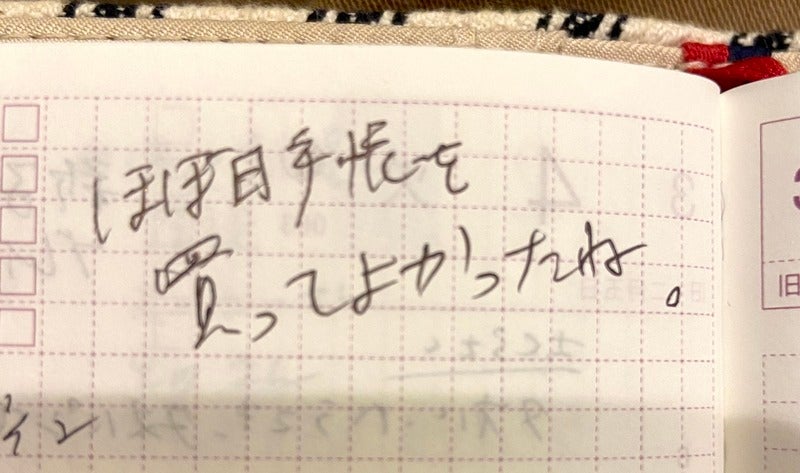 ほぼ日手帳を
買ってよかったね。